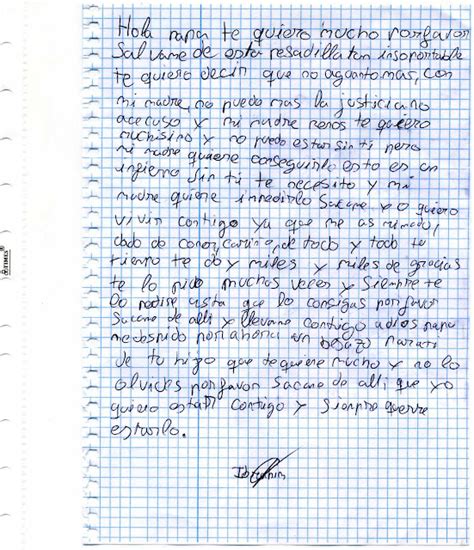 Hola papa te quiero mucho porfavor
Salvame de esta pesadilla tan insoportable
te quiero decir que no aguanto mas, con
mi madre, no puedo mas la justicia no
acecuso y mi madre te quiero
muchisimo y no puedo estar sin ti pero
mi madre quiere conseguirlo esto es un
infierno sin ti te necesito y mi
madre quiere inpedirlo Sacame yo quiero
vivir contigo ya que me as
dado de con carino, de todo y todo te
te doy miles y miles de gracias
te lo pido muchas veces y siempre te
lo pedire asta que lo consigas porfavor
Sacame de alli y llevame contigo adios papa
me despido por ahora un besazo para ti
de tu higo que te quiere mucho y no lo
olvides porfavor Sacame de alli que yo
quiero estar contigo y siempre querre
estarlo.
Ibrahim